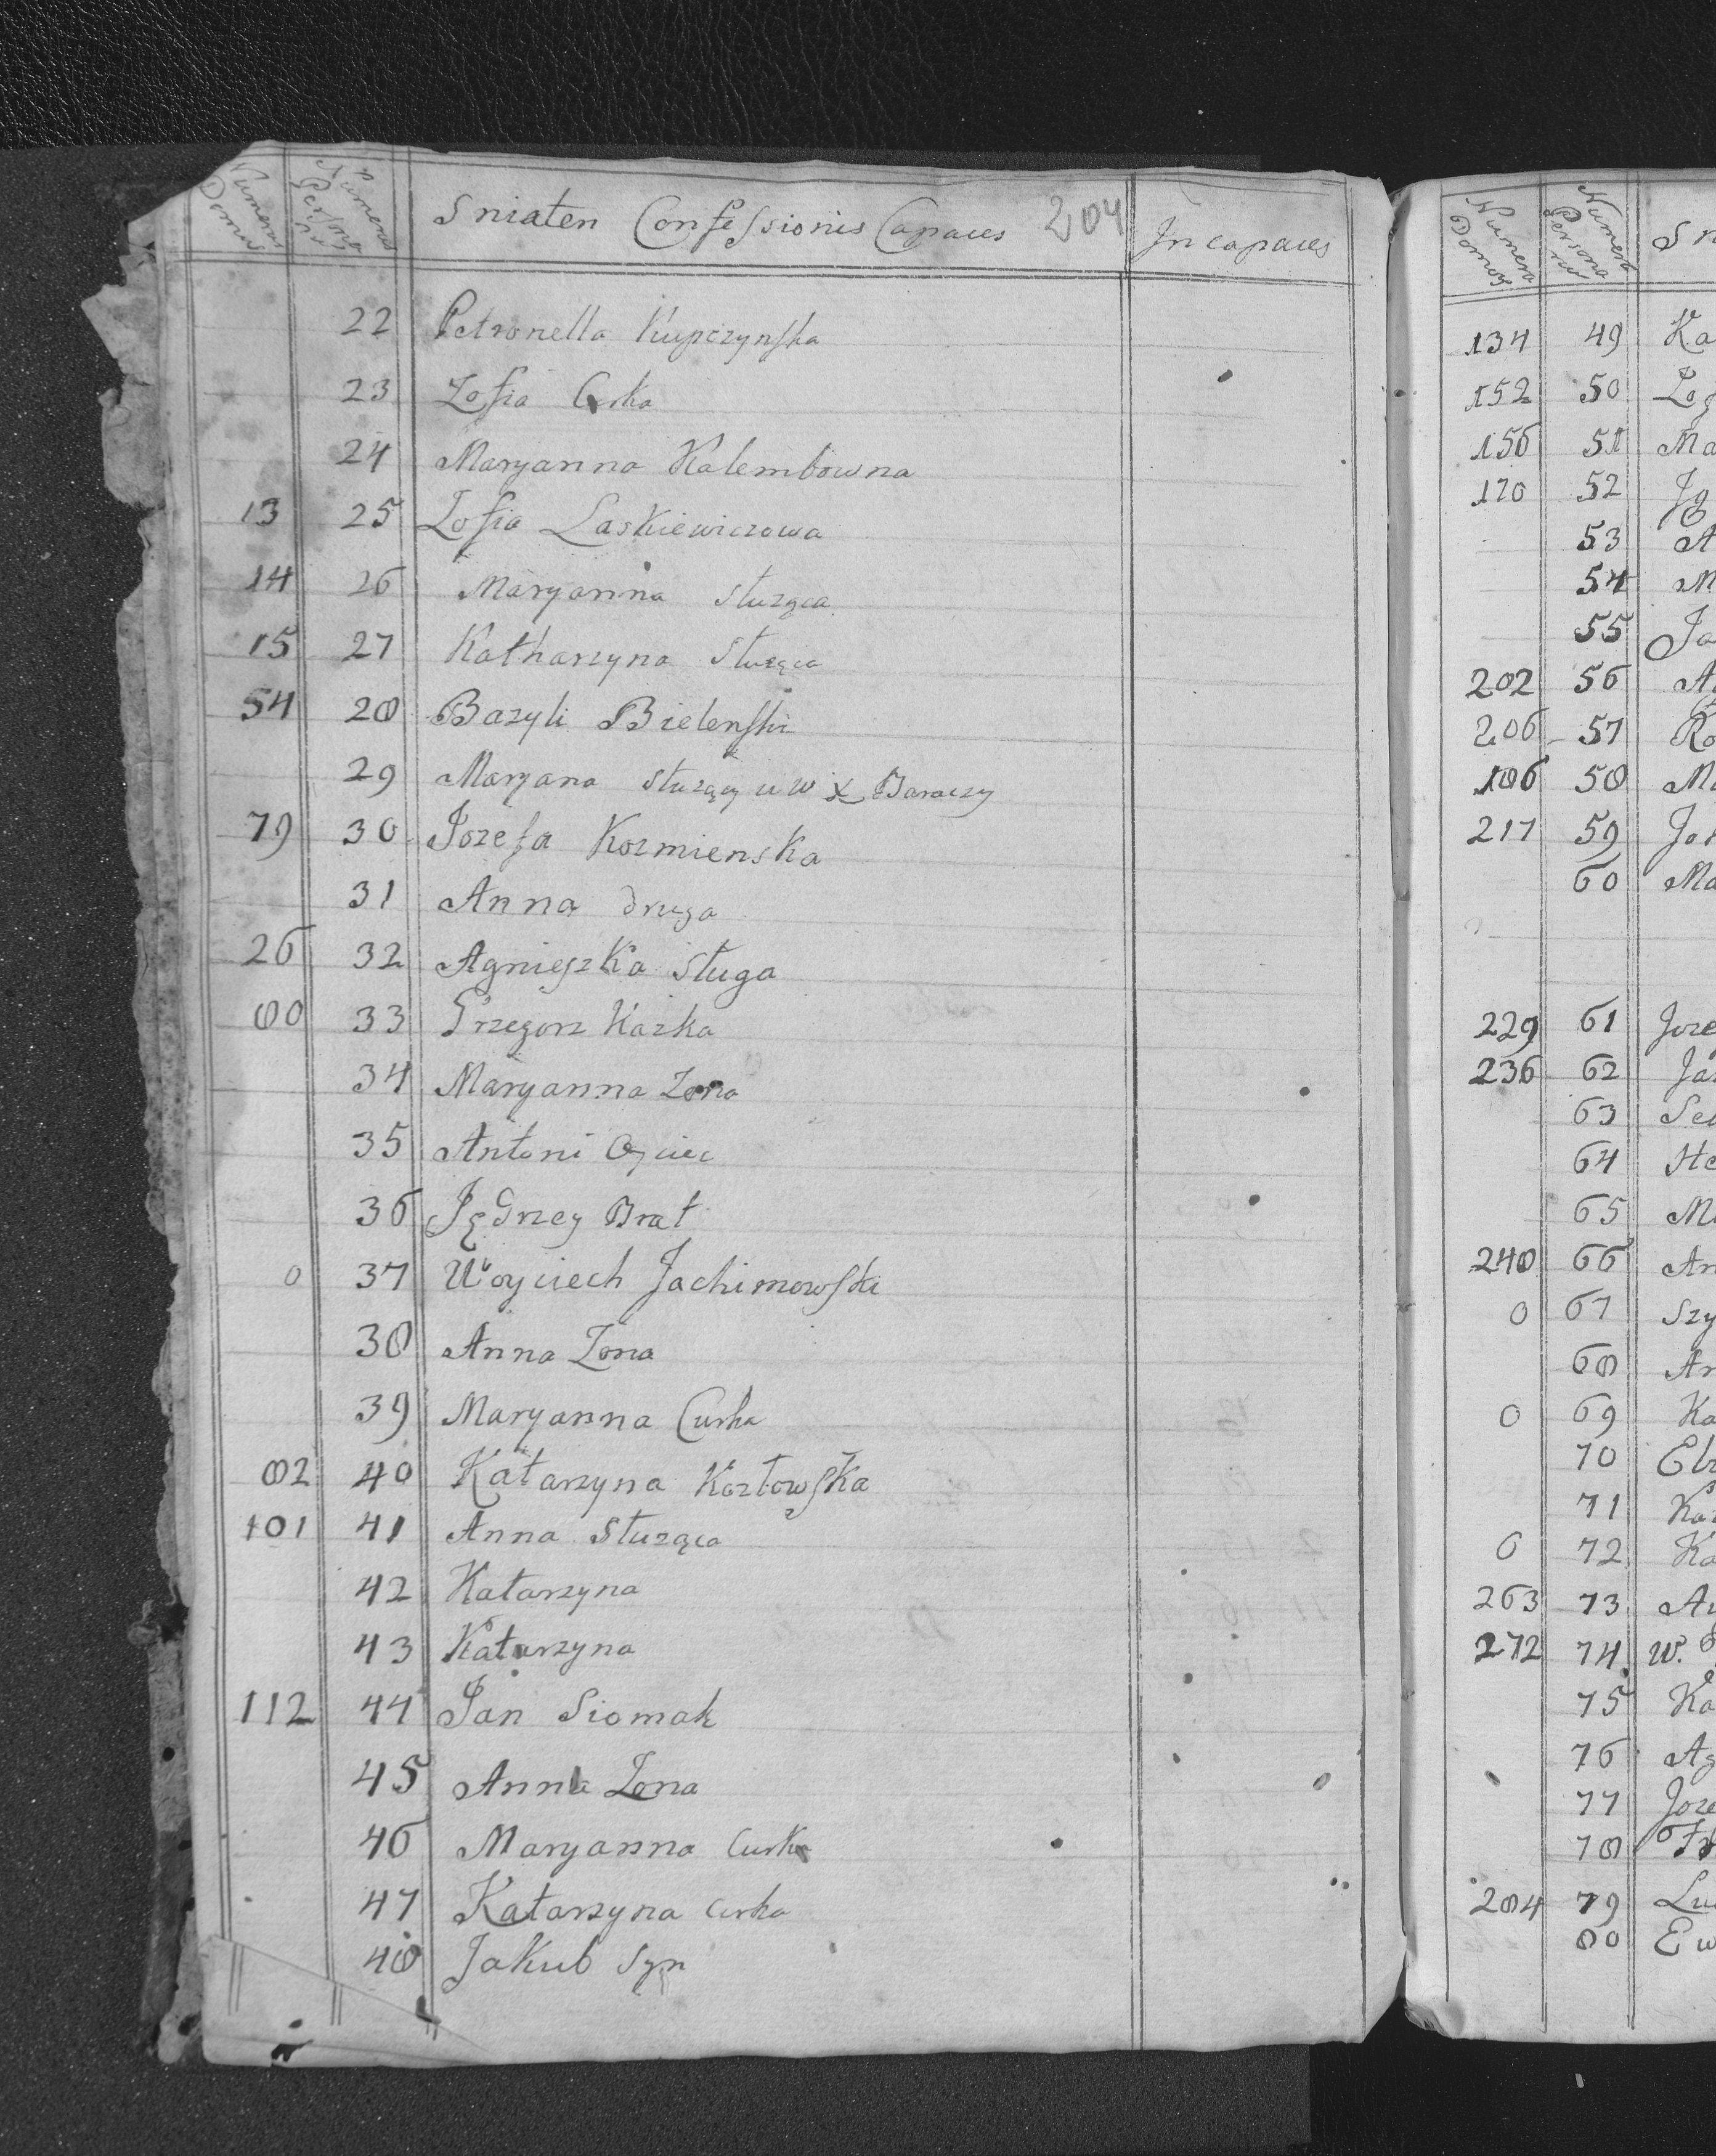 Numerus Domus Numerus Persona rus Sniaten Confessionis Capaces 204 Incapaces
22 Petronella Kupczynska
23 Zofia Curka
24 Maryanna Kalembowna
13 25 Zofia Laskiewiczowa
14 26 Maryanna służąca
15 27 Katharzyna służąca
54 28 Bazyli Bielenski
29 Maryana służący u W X Baraczy
79 30 Jozefa Kozmienska
31 Anna druga
26 32 Agnieszka sługa
80 33 Grzegorz Kazka
34 Maryanna Zona
35 Antoni Oyciec
36 Jędrzey Brat
0 37 Woyciech Jachimowski
38 Anna Zona
39 Maryanna Curka
82 40 Katarzyna Kozłowska
101 41 Anna służąca
42 Katarzyna
43 Katarzyna
112 44 Jan Siomak
45 Anna Zona
46 Maryanna Curka
47 Katarzyna curka
48 Jakub Syn
Numera Domus Numera Persona rus Sn
134 49 Ka
152 50 Zof
156 51 Ma
170 52 Ig
53 A
54 M
55 Ja
202 56 Ag
206 57 Ro
186 58 Ma
217 59 Jo
60 Ma
229 61 Joze
236 62 Jan
63 Se
64 He
65 Ma
248 66 An
0 67 Szy
68 An
0 69 Ka
70 Elz
71 Kaz
0 72 Ka
263 73 Au
272 74 W.
75 Ka
76 Ag
77 Joze
78 Fr
284 79 Lu
80 Ew